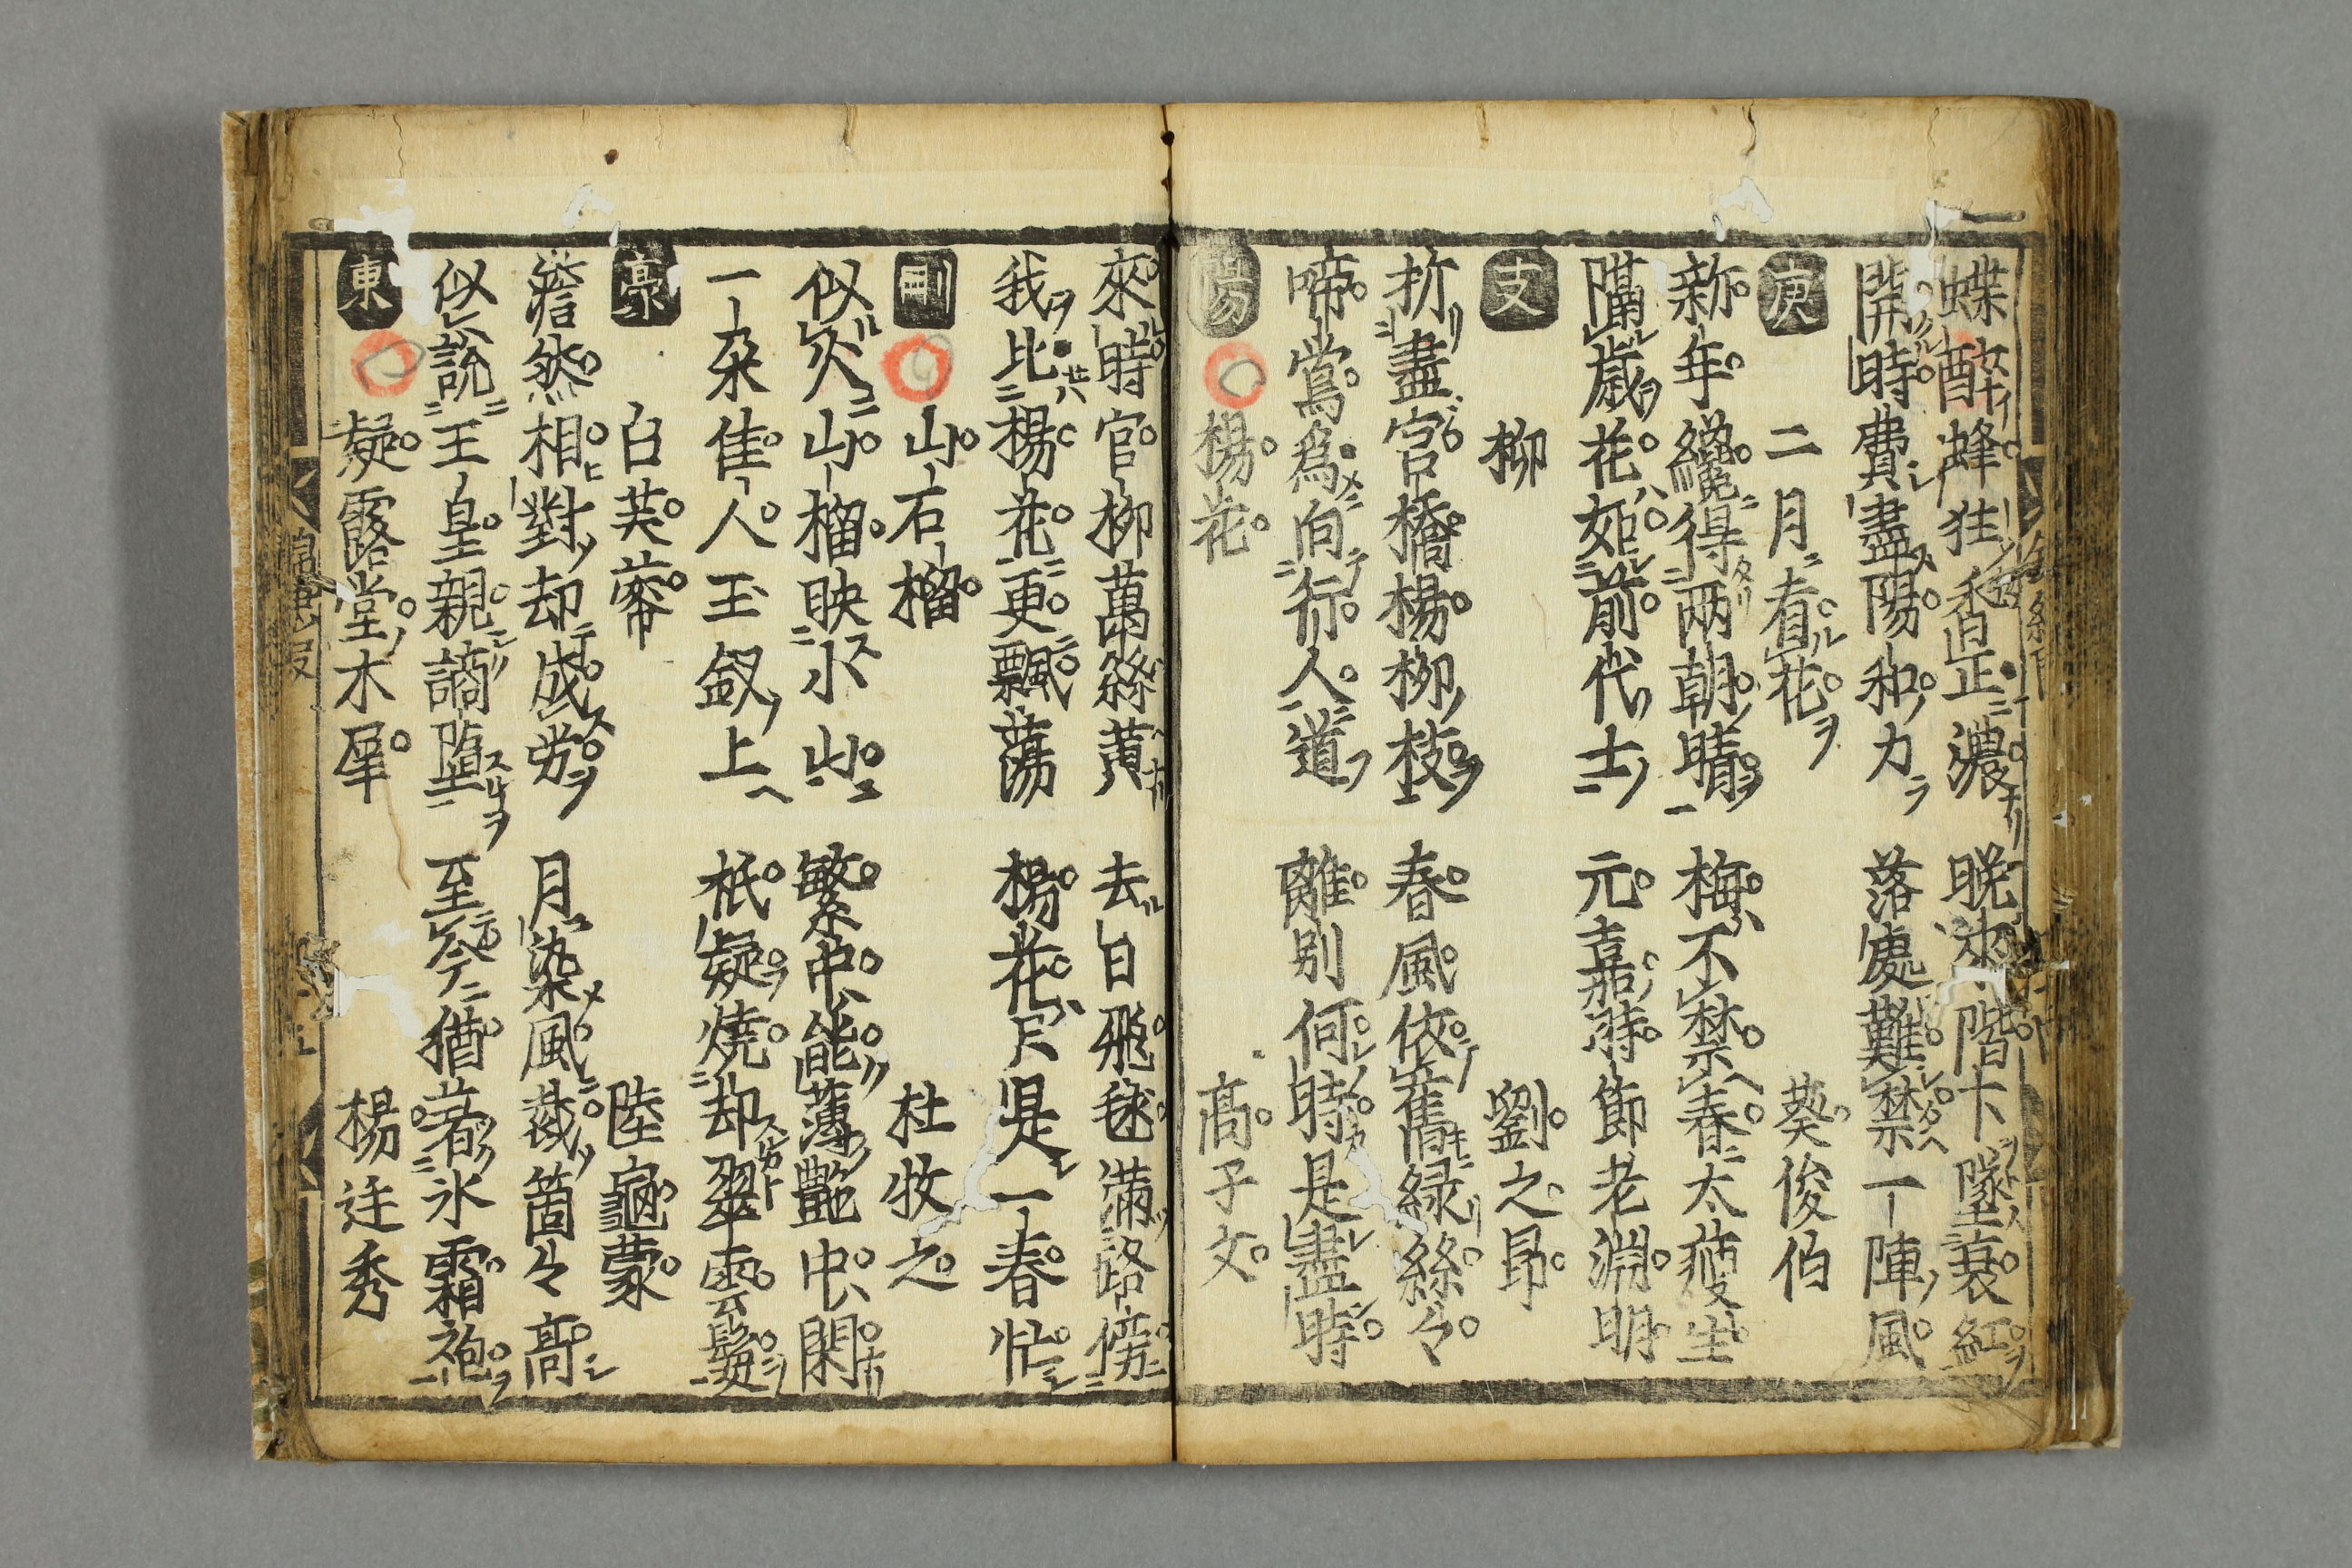 蝶醉蜂狂香正濃 晩來階下墜衰紅
開時費盡陽和力 落處難禁一陣風
庚 二月看花 葵俊伯
新年纔得兩朝晴 梅不禁春太瘦生
隔歳花如前代士 元嘉時節老淵明
支 柳 劉之昂
折盡官橋楊柳枝 春風依舊緑絲々
啼鴬為向行人道 離別何時是盡時
陽 楊花 髙子文
來時官柳萬絲黄 去日飛毬滿路傍
我比楊花更飄蕩 楊花只是一春忙
刪 山石榴 杜牧之
似火山榴映小山 繁中能薄艶中閑
一朶佳人玉釵上 秖疑燒却翠雲鬟
豪 白芙蓉 陸龜蒙
澹然相對却成勞 月染風裁箇々髙
似説玉皇親謫墮 至今猶著氷霜袍
東 凝露堂木犀 楊廷秀